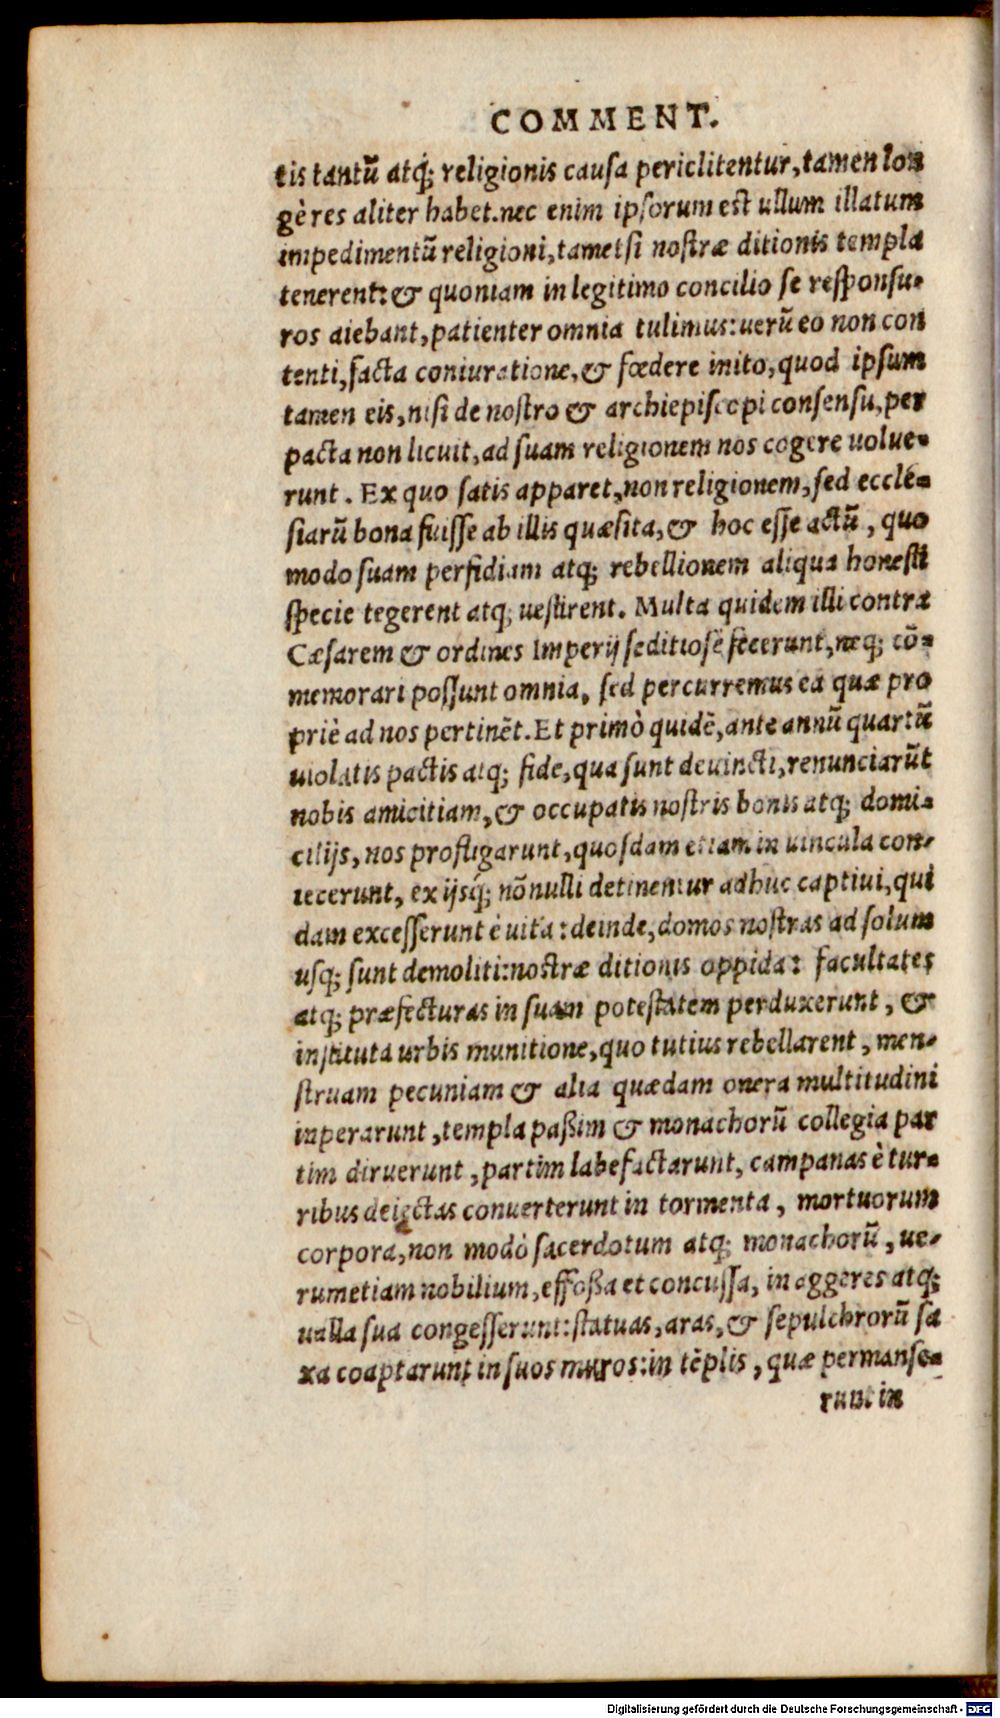 COMMENT.
tis tantũ atq́; religionis causa periclitentur, tamen lon
gè res aliter habet. nec enim ipsorum est ullum illatum
impedimentũ religioni, tametsi nostræ ditionis templa
tenerent: & quoniam in legitimo concilio se responsu-
ros aiebant, patienter omnia tulimus: uerũ eo non con
tenti, facta coniuratione, & fœdere inito, quod ipsum
tamen eis, nisi de nostro & archiepiscopi consensu, per
pacta non licuit, ad suam religionem nos cogere uolue-
runt. Ex quo satis apparet, non religionem, sed eccle-
siarũ bona fuisse ab illis quæsita, & hoc esse actũ, quo
modo suam perfidiam atq; rebellionem aliqua honesti
specie tegerent atq; uestirent. Multa quidem illi contra
Cæsarem & ordines Imperij seditiosè fecerunt, neq; cõ-
memorari possunt omnia, sed percurremus ea quæ pro
priè ad nos pertinẽt. Et primò quidẽ, ante annũ quartũ
uiolatis pactis atq; fide, qua sunt deuincti, renunciarũt
nobis amicitiam, & occupatis nostris bonis atq; domi-
cilijs, nos profligarunt, quosdam etiam in uincula con-
iecerunt, ex ijsq́; nõnulli detinentur adhuc captiui, qui
dam excesserunt è uita: deinde, domos nostras ad solum
usq; sunt demoliti: nostræ ditionis oppida: facultates
atq; præfecturas in suam potestatem perduxerunt, &
instituta urbis munitione, quo tutius rebellarent, men-
struam pecuniam & alia quædam onera multitudini
inperarunt, templa paßim & monachorũ collegia par
tim diruerunt, partim labefactarunt, campanas è tur-
ribus deiectas conuerterunt in tormenta, mortuorum
corpora, non modò sacerdotum atq; monachorũ, ue-
rumetiam nobilium, effoßa et concussa, in aggeres atq;
ualla sua congesserunt: statuas, aras, & sepulchrorũ sa
xa coaptarunt in suos muros: in tẽplis, quæ permanse-
runt in
Digitalisierung gefördert durch die Deutsche Forschungsgemeinschaft - DFG